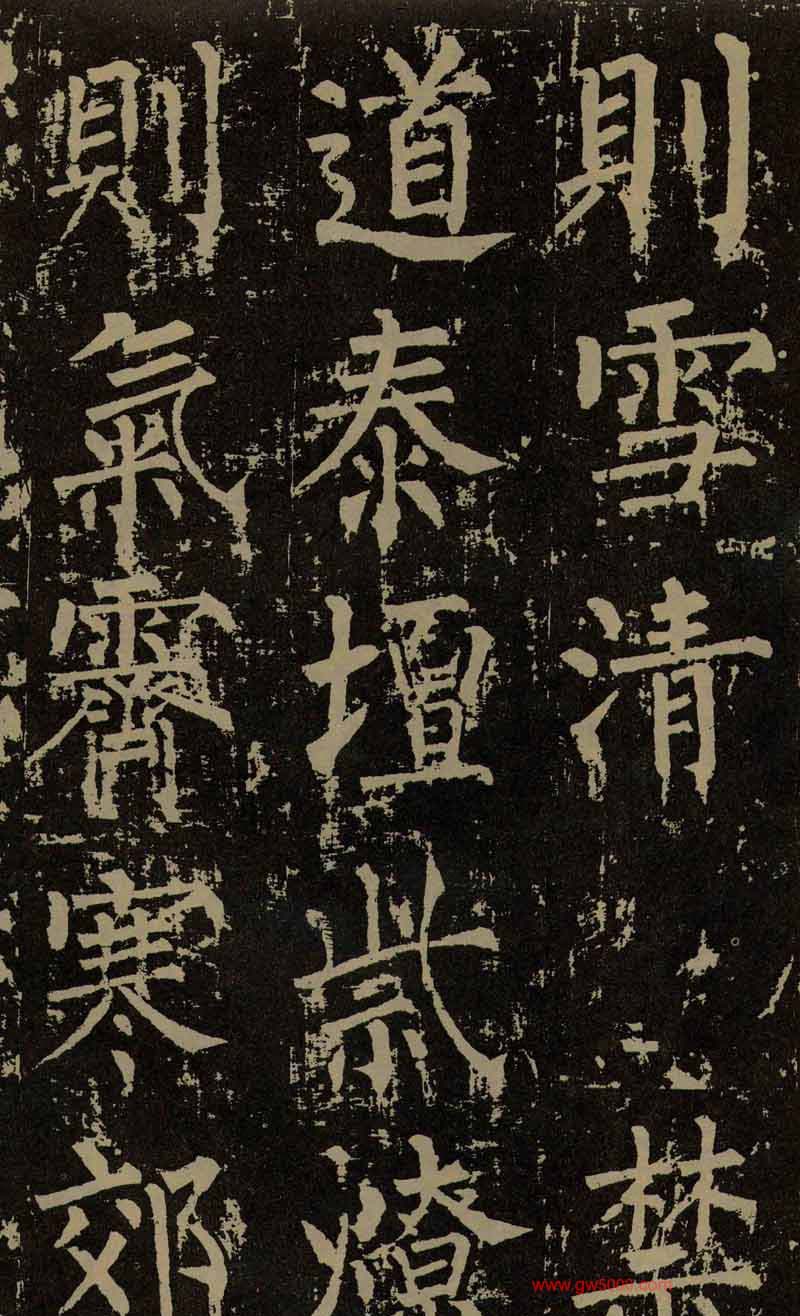 則雪清禁
道泰壇祡燎
則氣霽寒郊
www.gw5000.com